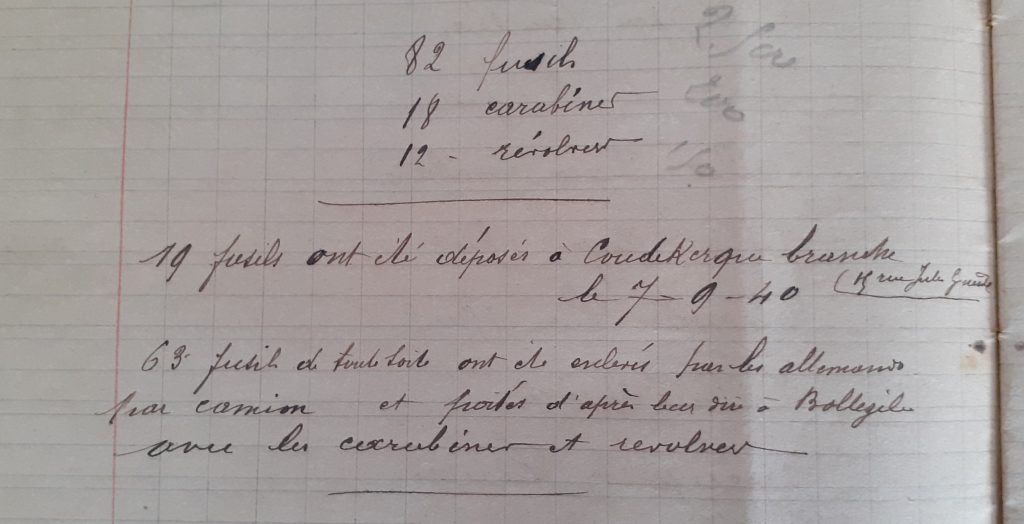 82 fusils
18 carabines
12 - révolver
19 fusils ont été déposés à Coudekerque branche
le 7-9-40 (15 rue Jules Guesde
63 fusils de toute sorte ont été enlevés par les allemands
par camion et portés d'après leur dire à Bollezeele
avec les carabines et revolver